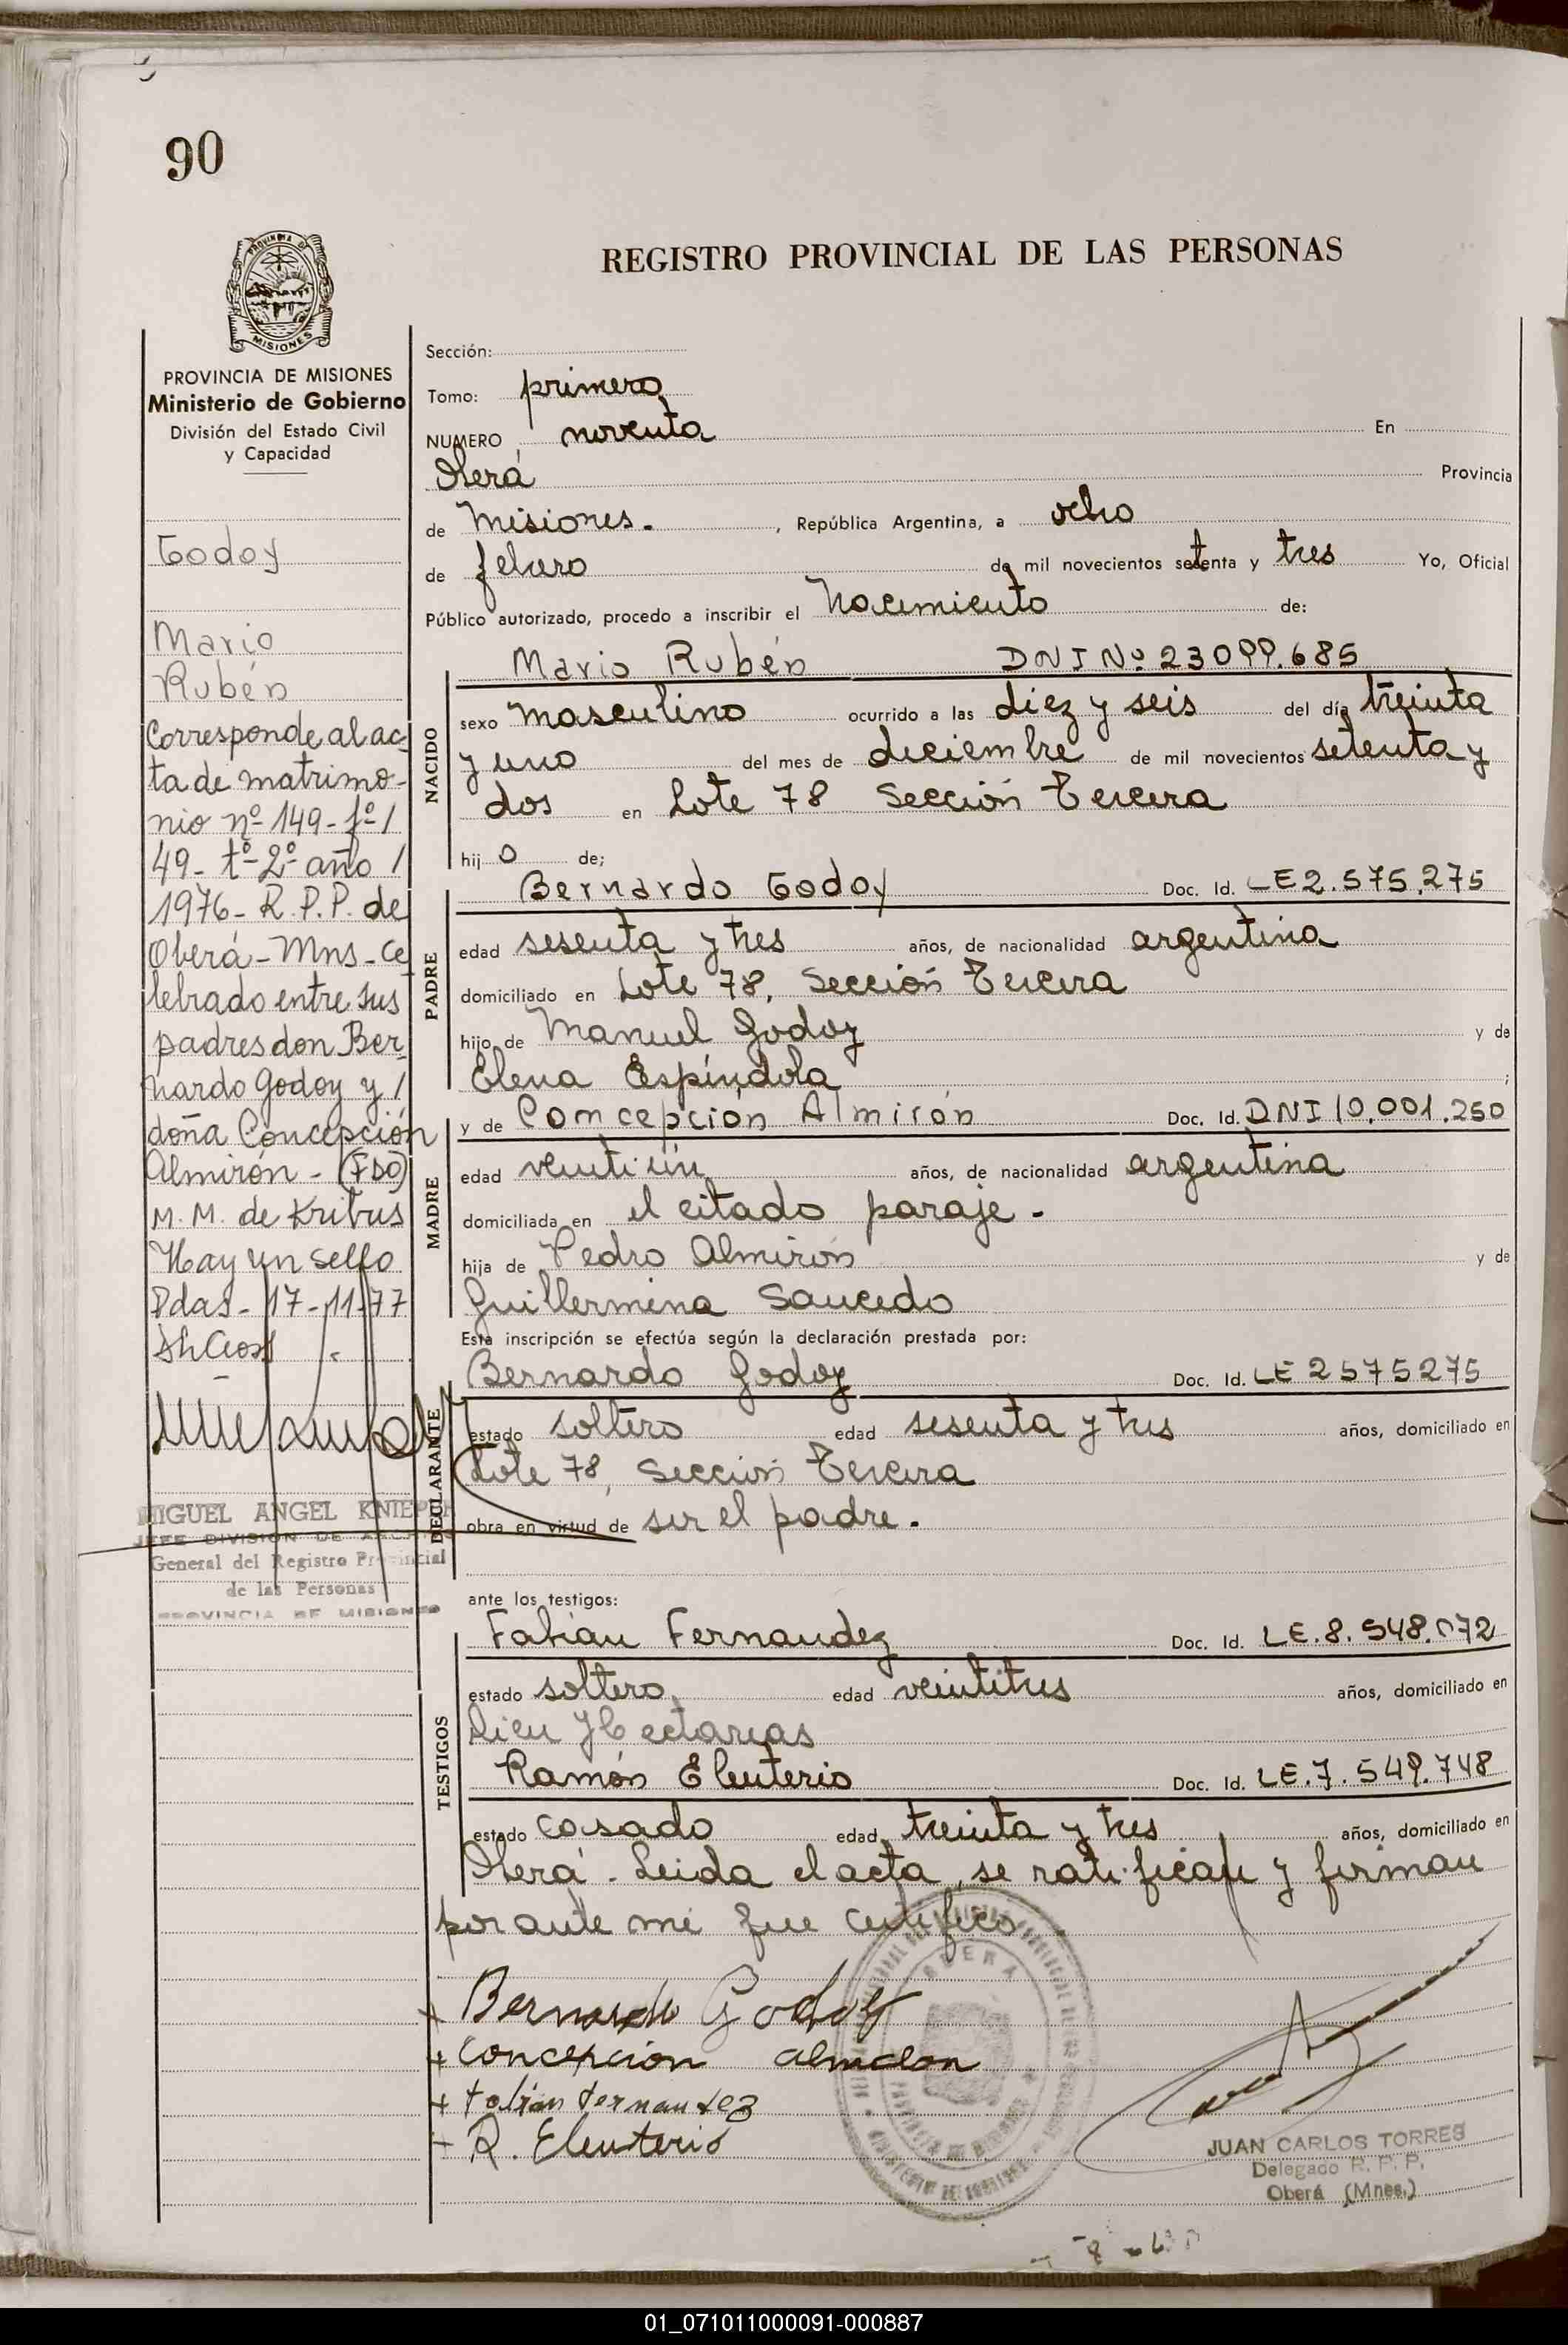 90
PROVINCIA DE MISIONES
Ministerio de Gobierno
División del Estado Civil
y Capacidad
Godoy
Mario
Rubén
Corresponde al ac-
ta de matrimo-
nio nº 149 - fº /
49 - tº - 2º año /
1976 - R. P. P. de
Oberá - Mns - ce
lebrado entre sus
padres don Ber-
nardo Godoy y /
doña Concepción
Almirón - (FDO)
M. M. de Kribus
Hay un sello
Pdas - 17-11-77
MIGUEL ANGEL
JEFE DIVISION DE
General del Registro Provincial
de las Personas
PROVINCIA DE MISIONES
REGISTRO PROVINCIAL DE LAS PERSONAS
Sección:
Tomo: primero
NUMERO noventa En
Oberá Provincia
de Misiones. , República Argentina, a ocho
de febrero de mil novecientos setenta y tres Yo, Oficial
Público autorizado, procedo a inscribir el Nacimiento de:
Mario Rubén DNI Nº 23099.685
NACIDO
sexo masculino ocurrido a las diez y seis del día treinta
y uno del mes de diciembre de mil novecientos setenta y
dos en Lote 78 Sección Tercera
hij o de;
PADRE
Bernardo Godoy Doc. Id. LE 2.575.275
edad sesenta y tres años, de nacionalidad argentina
domiciliado en Lote 78, Sección Tercera
hijo de Manuel Godoy y de
Elena Espíndola ;
MADRE
y de Comcepción Almirón Doc. Id. DNI 10.001.250
edad veintiún años, de nacionalidad argentina
domiciliada en el citado paraje.-
hija de Pedro Almirón y de
Guillermina Saucedo
Esta inscripción se efectúa según la declaración prestada por:
DECLARANTE
Bernardo Godoy Doc. Id. LE 2575275
estado soltero edad sesenta y tres años, domiciliado en
Lote 78, Sección Tercera
obra en virtud de ser el padre.
ante los testigos:
TESTIGOS
Fabián Fernandez Doc. Id. LE.8.548.072
estado soltero, edad veintitres años, domiciliado en
Hectareas
Ramón Eleuterio Doc. Id. LE.7.549.748
estado casado edad treinta y tres años, domiciliado en
Oberá. Leida el acta, se ratifican y firman
por ante mi que certifico.
+ Bernardo Godoy
+ Concepcion
+ Fabian Fernandez
+ R. Eleuterio
OBERA
JUAN CARLOS TORRES
Delegado R. P. P.
Oberá (Mnes.)
01_071011000091-000887